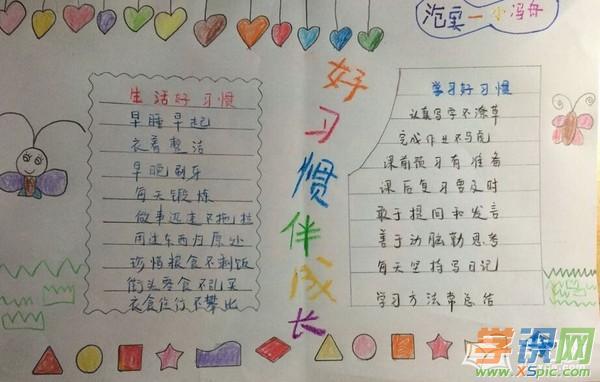 范实一小冯丹
生活好习惯
早睡早起
衣着整洁
早晚刷牙
每天锻炼
做事迅速不拖拉
用洗东西放原处
珍惜粮食不剩饭
街头零食不乱买
衣食住行不攀比
好习惯伴成长
学习好习惯
认真写字不潦草
完成作业不马虎
课前预习有准备
课后复习要及时
敢于提问和发言
善于动脑勤思考
每天坚持写日记
学习方法常总结
学课网
www.xspic.com